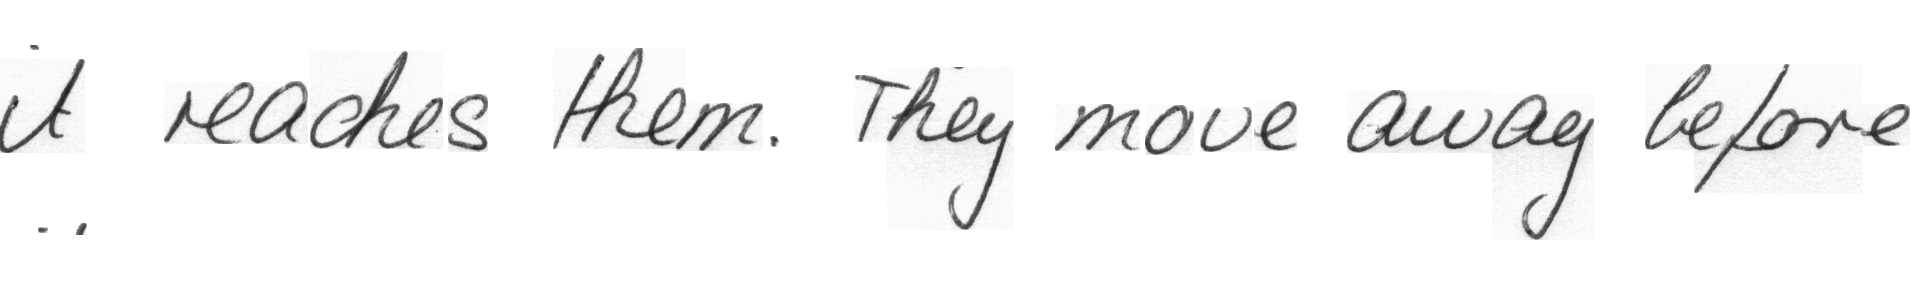 it reaches them. They move away before